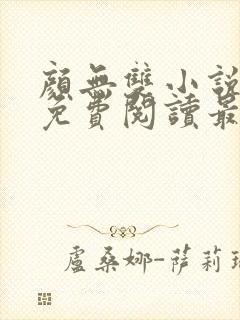 顏無雙小說
免費閱讀最
盧桑娜-薩莉